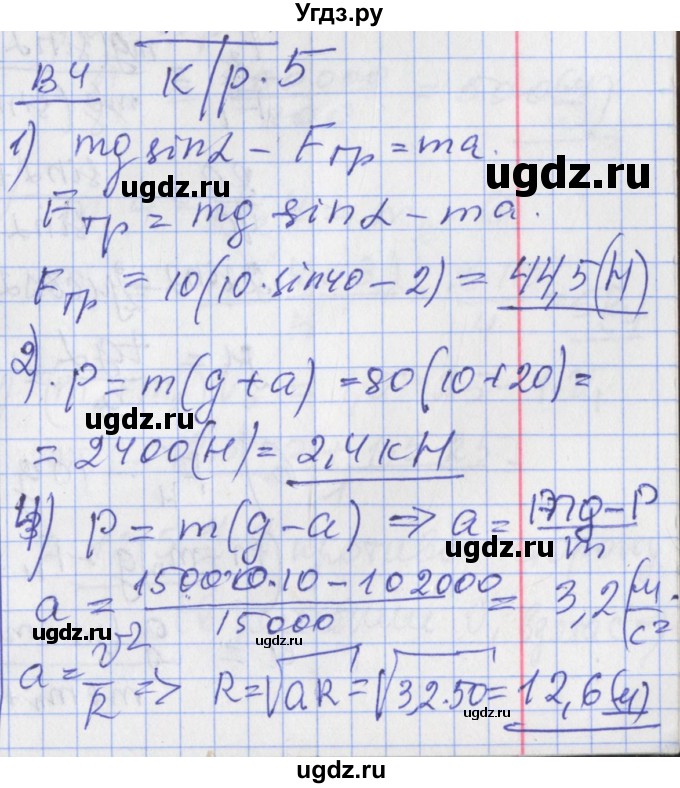 Угдз.ру
В4 К/р. 5
1) mg sinα - Fтр = ma.
Fтр = mg sinα - ma.
Fтр = 10(10·sin40 - 2) = 44,5(Н)
2). P = m(g+a) = 80(10+20) =
= 2400(Н) = 2,4 кН
4) P = m(g-a) => a = (mg-P)/m
a = (15000·10 - 102000)/15000 = 3,2 (м/с²
a = v²/R => R = √aR = √3,2·50 = 12,6 (м)
ugdz.ru
ugdz.ru
ugdz.ru
ugdz.ru
ugdz.ru
ugdz.ru
ugdz.ru
ugdz.ru
ugdz.ru
ugdz.ru
ugdz.ru
ugdz.ru